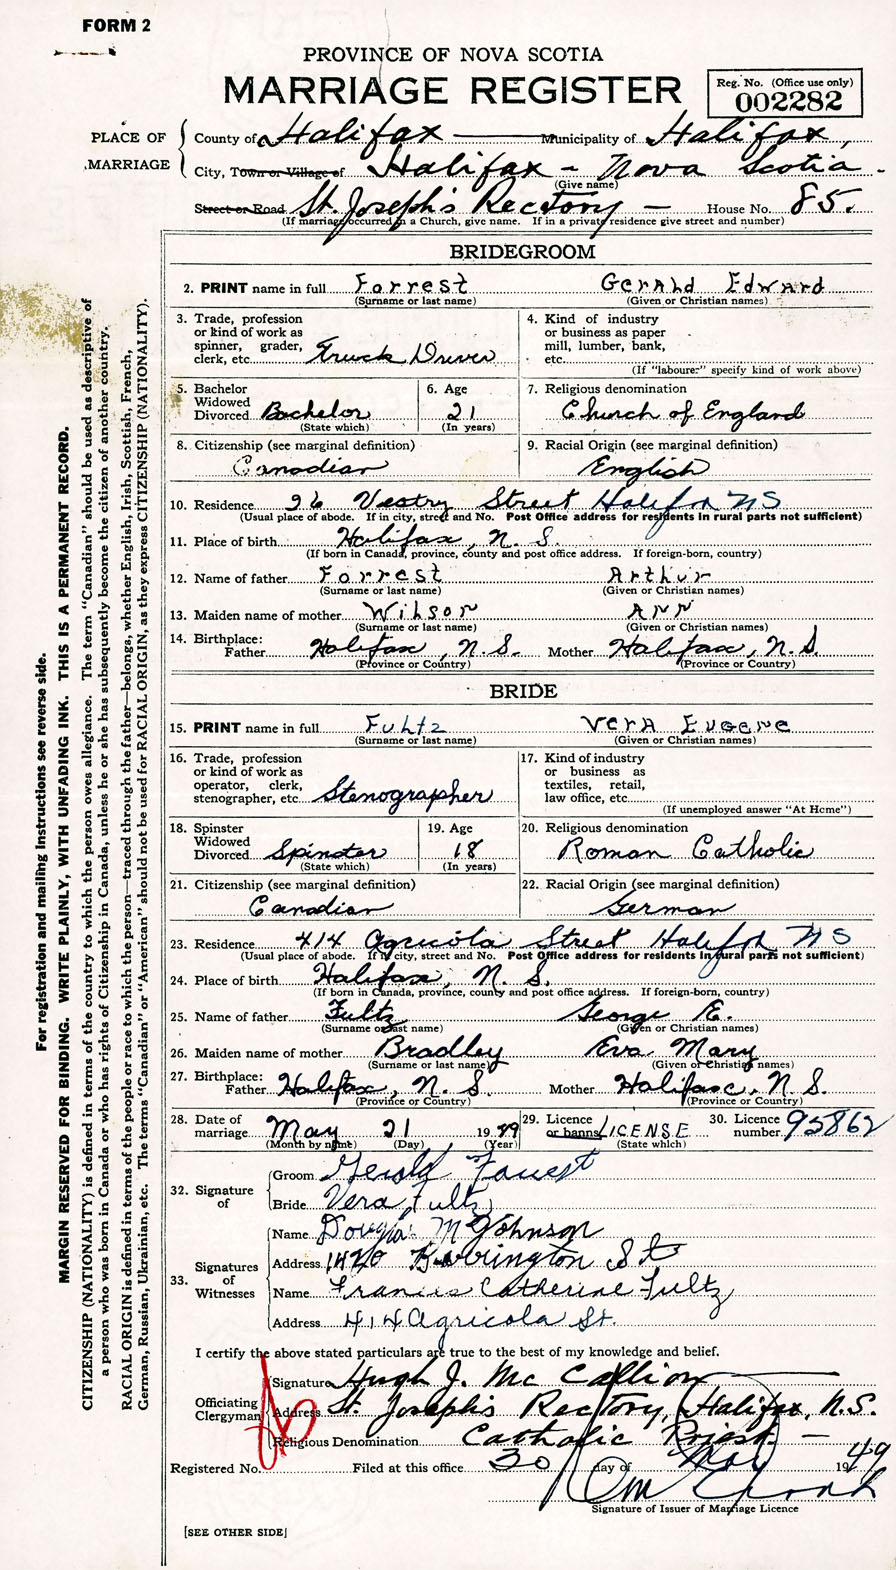 FORM 2
PROVINCE OF NOVA SCOTIA
MARRIAGE REGISTER
Reg. No. (Office use only)
002282
PLACE OF MARRIAGE
County of Halifax Municipality of Halifax,
City, Town or Village of Halifax - Nova Scotia
(Give name)
Street or Road St. Joseph's Rectory - House No. 85.
(If marriage occurred in a Church, give name. If in a private residence give street and number)
BRIDEGROOM
2. PRINT name in full Forrest Gerald Edward
(Surname or last name) (Given or Christian names)
3. Trade, profession or kind of work as spinner, grader, clerk, etc. Truck Driver
4. Kind of industry or business as paper mill, lumber, bank, etc.
(If "labourer" specify kind of work above)
5. Bachelor Widowed Divorced Bachelor
(State which)
6. Age 21
(In years)
7. Religious denomination
Church of England
8. Citizenship (see marginal definition)
Canadian
9. Racial Origin (see marginal definition)
English
10. Residence 26 Vestry Street Halifax NS
(Usual place of abode. If in city, street and No. Post Office address for residents in rural parts not sufficient)
11. Place of birth Halifax, N. S.
(If born in Canada, province, county and post office address. If foreign-born, country)
12. Name of father Forrest Arthur
(Surname or last name) (Given or Christian names)
13. Maiden name of mother Wilson Ann
(Surname or last name) (Given or Christian names)
14. Birthplace: Father Halifax, N.S. Mother Halifax, N.S.
(Province or Country) (Province or Country)
BRIDE
15. PRINT name in full Fultz Vera Eugene
(Surname or last name) (Given or Christian names)
16. Trade, profession or kind of work as operator, clerk, stenographer, etc. Stenographer
17. Kind of industry or business as textiles, retail, law office, etc.
(If unemployed answer "At Home")
18. Spinster Widowed Divorced Spinster
(State which)
19. Age 18
(In years)
20. Religious denomination
Roman Catholic
21. Citizenship (see marginal definition)
Canadian
22. Racial Origin (see marginal definition)
German
23. Residence 414 Agricola Street Halifax NS
(Usual place of abode. If in city, street and No. Post Office address for residents in rural parts not sufficient)
24. Place of birth Halifax, N. S.
(If born in Canada, province, county and post office address. If foreign-born, country)
25. Name of father Fultz George E.
(Surname or last name) (Given or Christian names)
26. Maiden name of mother Bradley Eva Mary
(Surname or last name) (Given or Christian names)
27. Birthplace: Father Halifax, N. S. Mother Halifax, N. S.
(Province or Country) (Province or Country)
28. Date of marriage May 21 1949
(Month by name) (Day) (Year)
29. Licence or banns LICENSE
(State which)
30. Licence number 95862
32. Signature of
Groom Gerald Forrest
Bride Vera Fultz
33. Signatures of Witnesses
Name Douglas McJohnson
Address 1420 Barrington St
Name Francis Catherine Fultz
Address 414 Agricola St.
I certify the above stated particulars are true to the best of my knowledge and belief.
Officiating Clergyman
Signature Hugh J. Mc Callion
Address St. Joseph's Rectory, Halifax, N.S.
Religious Denomination Catholic Priest -
Registered No. Filed at this office 30 day of May 1949
Signature of Issuer of Marriage Licence
[SEE OTHER SIDE]
For registration and mailing instructions see reverse side.
MARGIN RESERVED FOR BINDING. WRITE PLAINLY, WITH UNFADING INK. THIS IS A PERMANENT RECORD.
CITIZENSHIP (NATIONALITY) is defined in terms of the country to which the person owes allegiance. The term "Canadian" should be used as descriptive of
a person who was born in Canada or who has rights of Citizenship in Canada, unless he or she has subsequently become the citizen of another country.
RACIAL ORIGIN is defined in terms of the people or race to which the person—traced through the father—belongs, whether English, Irish, Scottish, French,
German, Russian, Ukrainian, etc. The terms "Canadian" or "American" should not be used for RACIAL ORIGIN, as they express CITIZENSHIP (NATIONALITY).